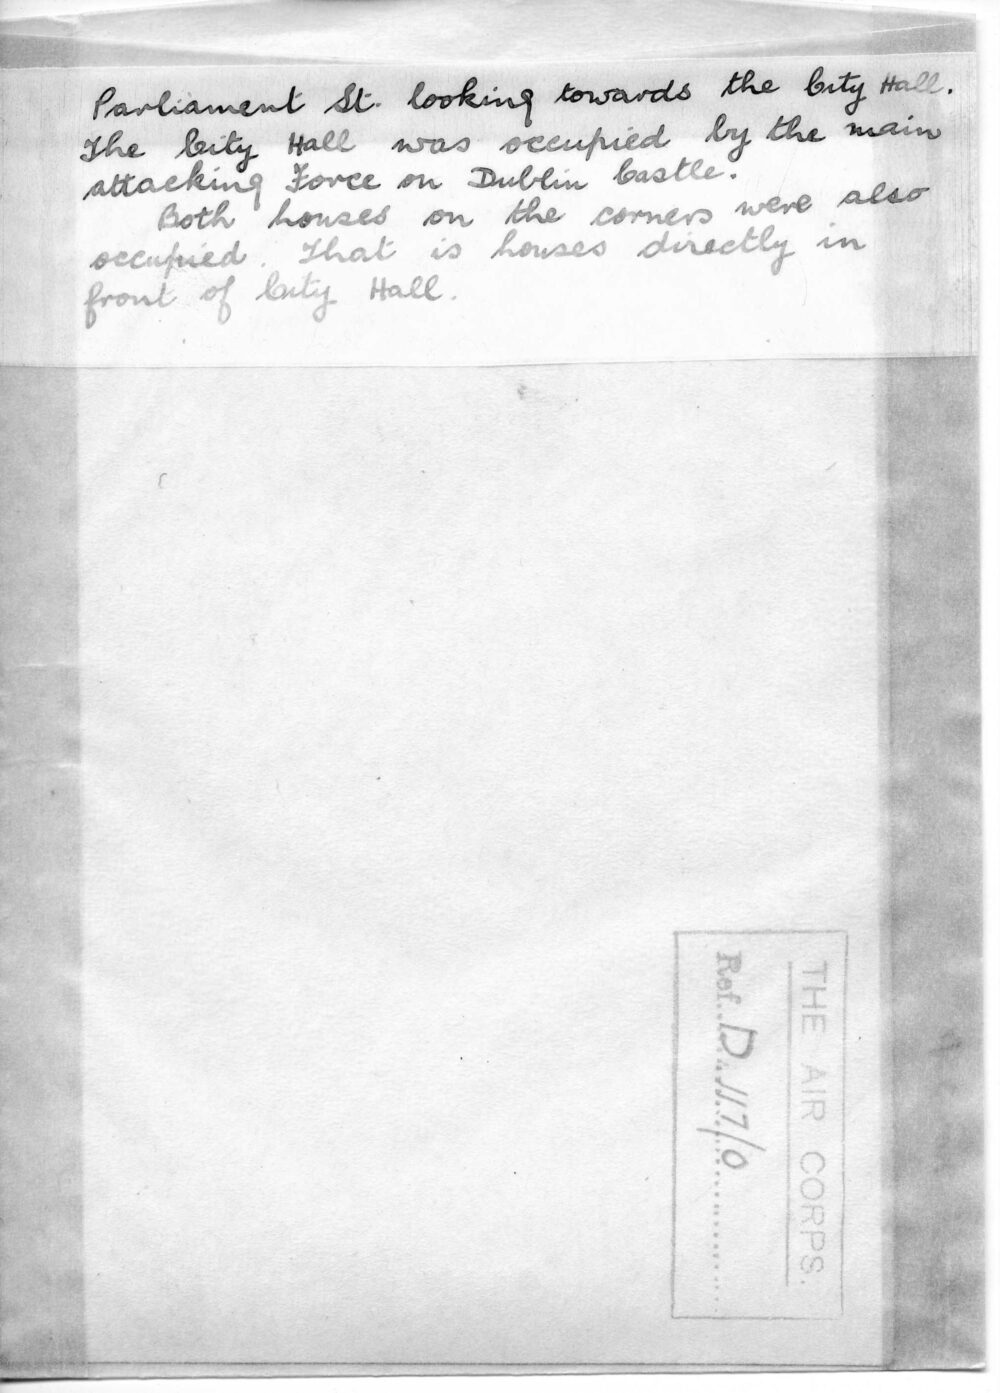 Parliament St. looking towards the City Hall.
The City Hall was occupied by the main
attacking Force on Dublin Castle.
Both houses on the corners were also
occupied. That is houses directly in
front of City Hall.
THE AIR CORPS.
Ref. D.117/0